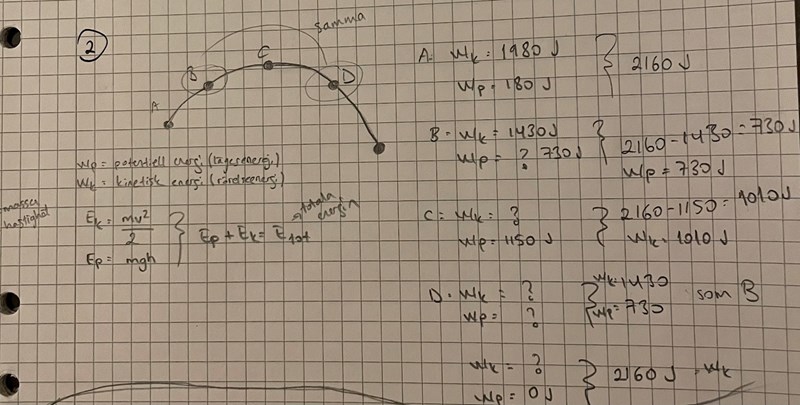 2
samma
A
B
C
D
Wp = potentiell energi (lägesenergi)
Wk = kinetisk energi (rörelseenergi)
massa
hastighet
Ek = mv²/2
Ep = mgh
} Ep + Ek = Etot
totala energin
A: Wk = 1980 J
Wp = 180 J
} 2160 J
B: Wk = 1430 J
Wp = ? 730 J
} 2160-1430 = 730 J
Wp = 730 J
C = Wk = ?
Wp = 1150 J
} 2160-1150 = 1010 J
Wk = 1010 J
D: Wk = ?
Wp = ?
} Wk=1430
Wp=730
som B
Wk = ?
Wp = 0 J
} 2160 J = Wk